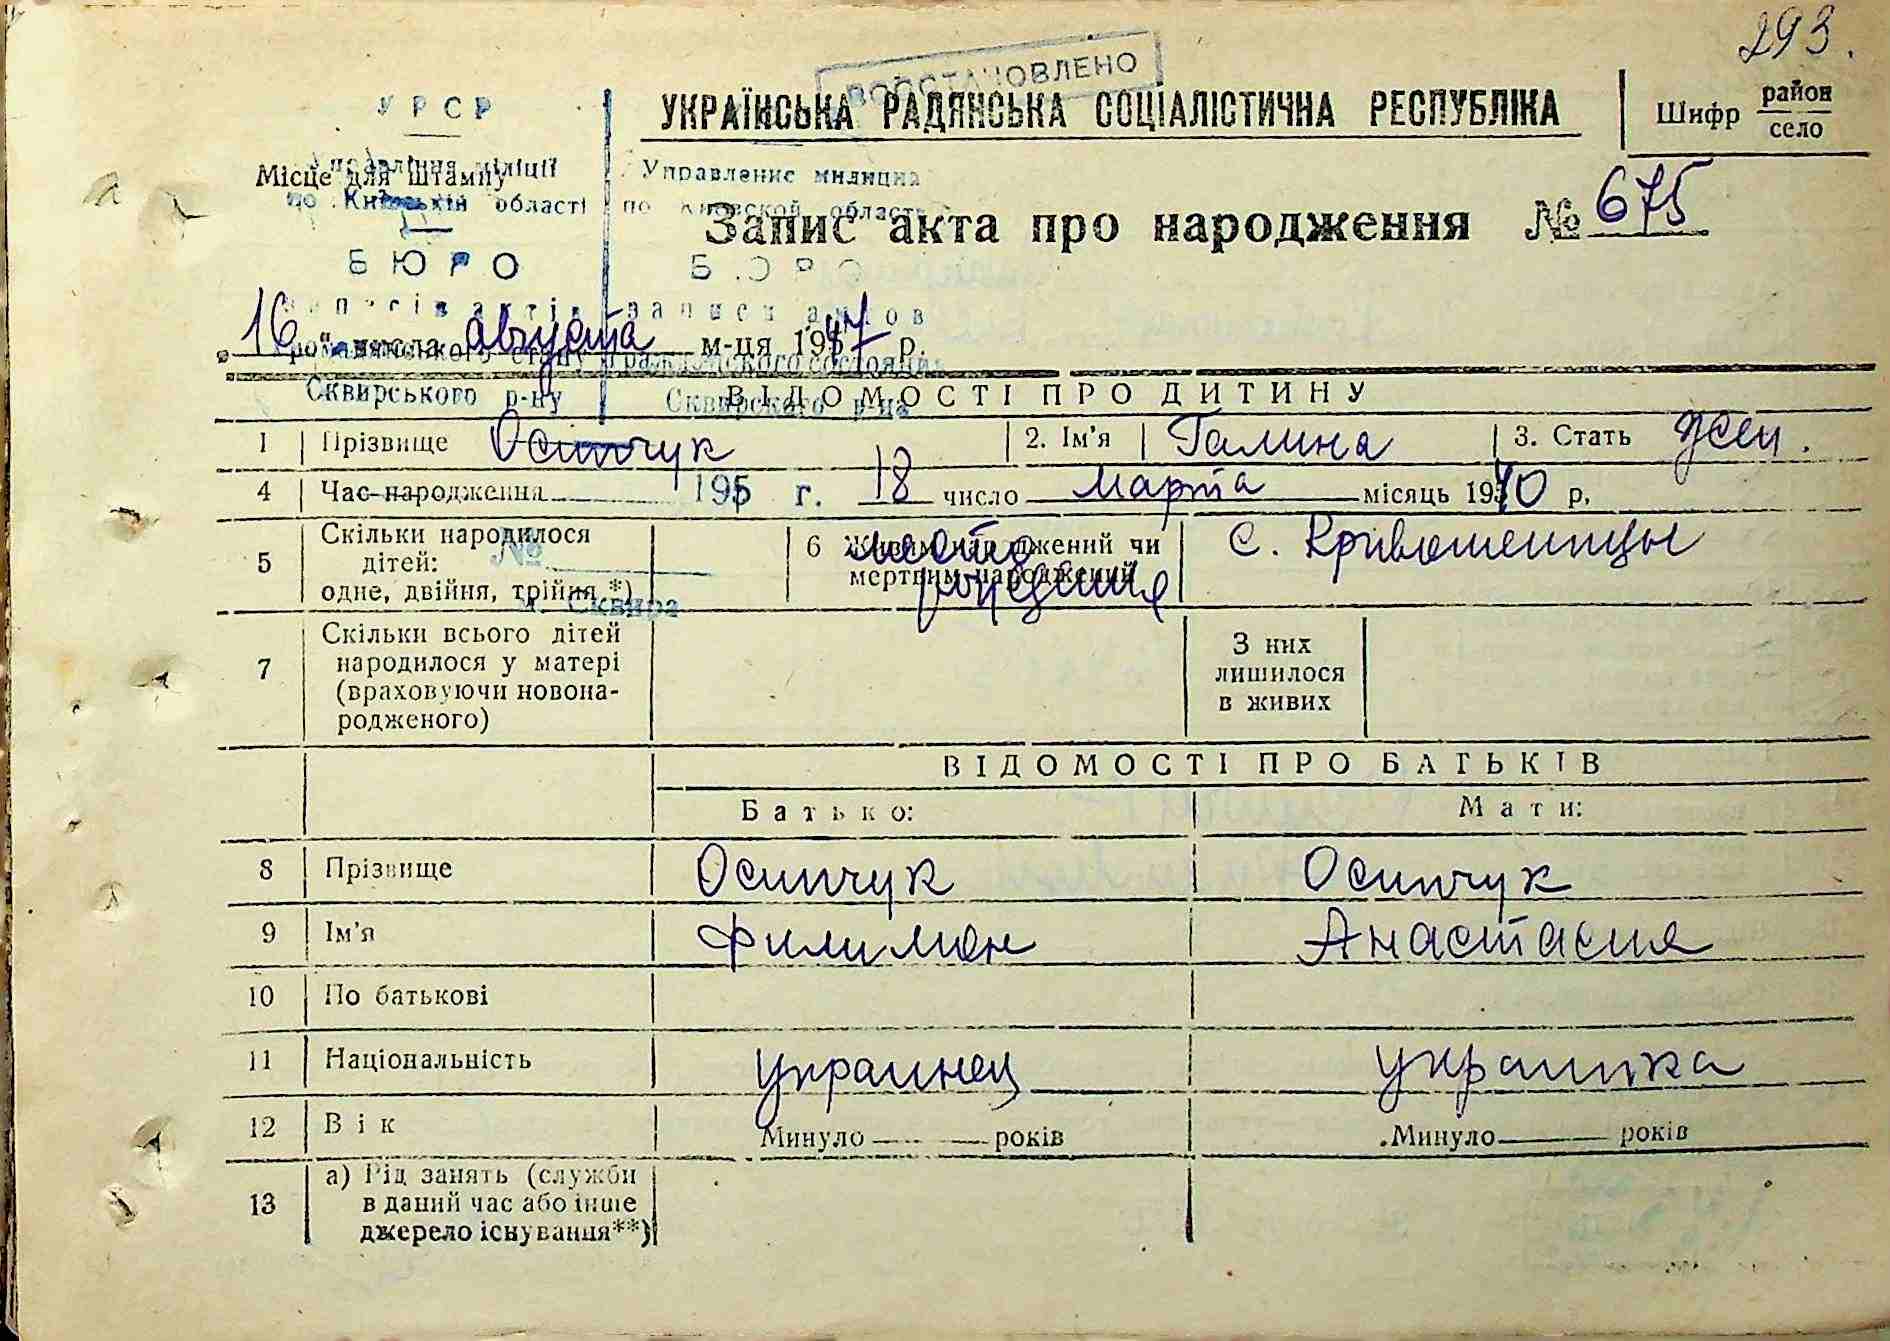 293.
ВОССТАНОВЛЕНО
УКРАЇНСЬКА РАДЯНСЬКА СОЦІАЛІСТИЧНА РЕСПУБЛІКА
Шифр район
село
УРСР
Місце для штампу
Управління міліції
по Київській області
Управление милиции
по Киевской области
Запис акта про народження № 675
БЮРО
БЮРО
записів актів
записи актов
"16" числа августа м-ця 1947 р.
громадянського стану
гражданского состояния
Сквирського р-ну
Сквирского р-на
ВІДОМОСТІ ПРО ДИТИНУ
1 Прізвище Осипчук 2. Ім'я Галина 3. Стать жен.
4 Час народження 195 г. 18 число марта місяць 1940 р.
5 Скільки народилося
дітей:
одне, двійня, трійня *)
№
м. Сквира
6 Живим народжений чи
мертвим народжений
место
рождения
с. Кривошеинцы
7 Скільки всього дітей
народилося у матері
(враховуючи новона-
родженого)
З них
лишилося
в живих
ВІДОМОСТІ ПРО БАТЬКІВ
Батько: Мати:
8 Прізвище Осипчук Осипчук
9 Ім'я Филимон Анастасия
10 По батькові
11 Національність украинец украинка
12 Вік Минуло років Минуло років
13 а) Рід занять (служби
в даний час або інше
джерело існування**)